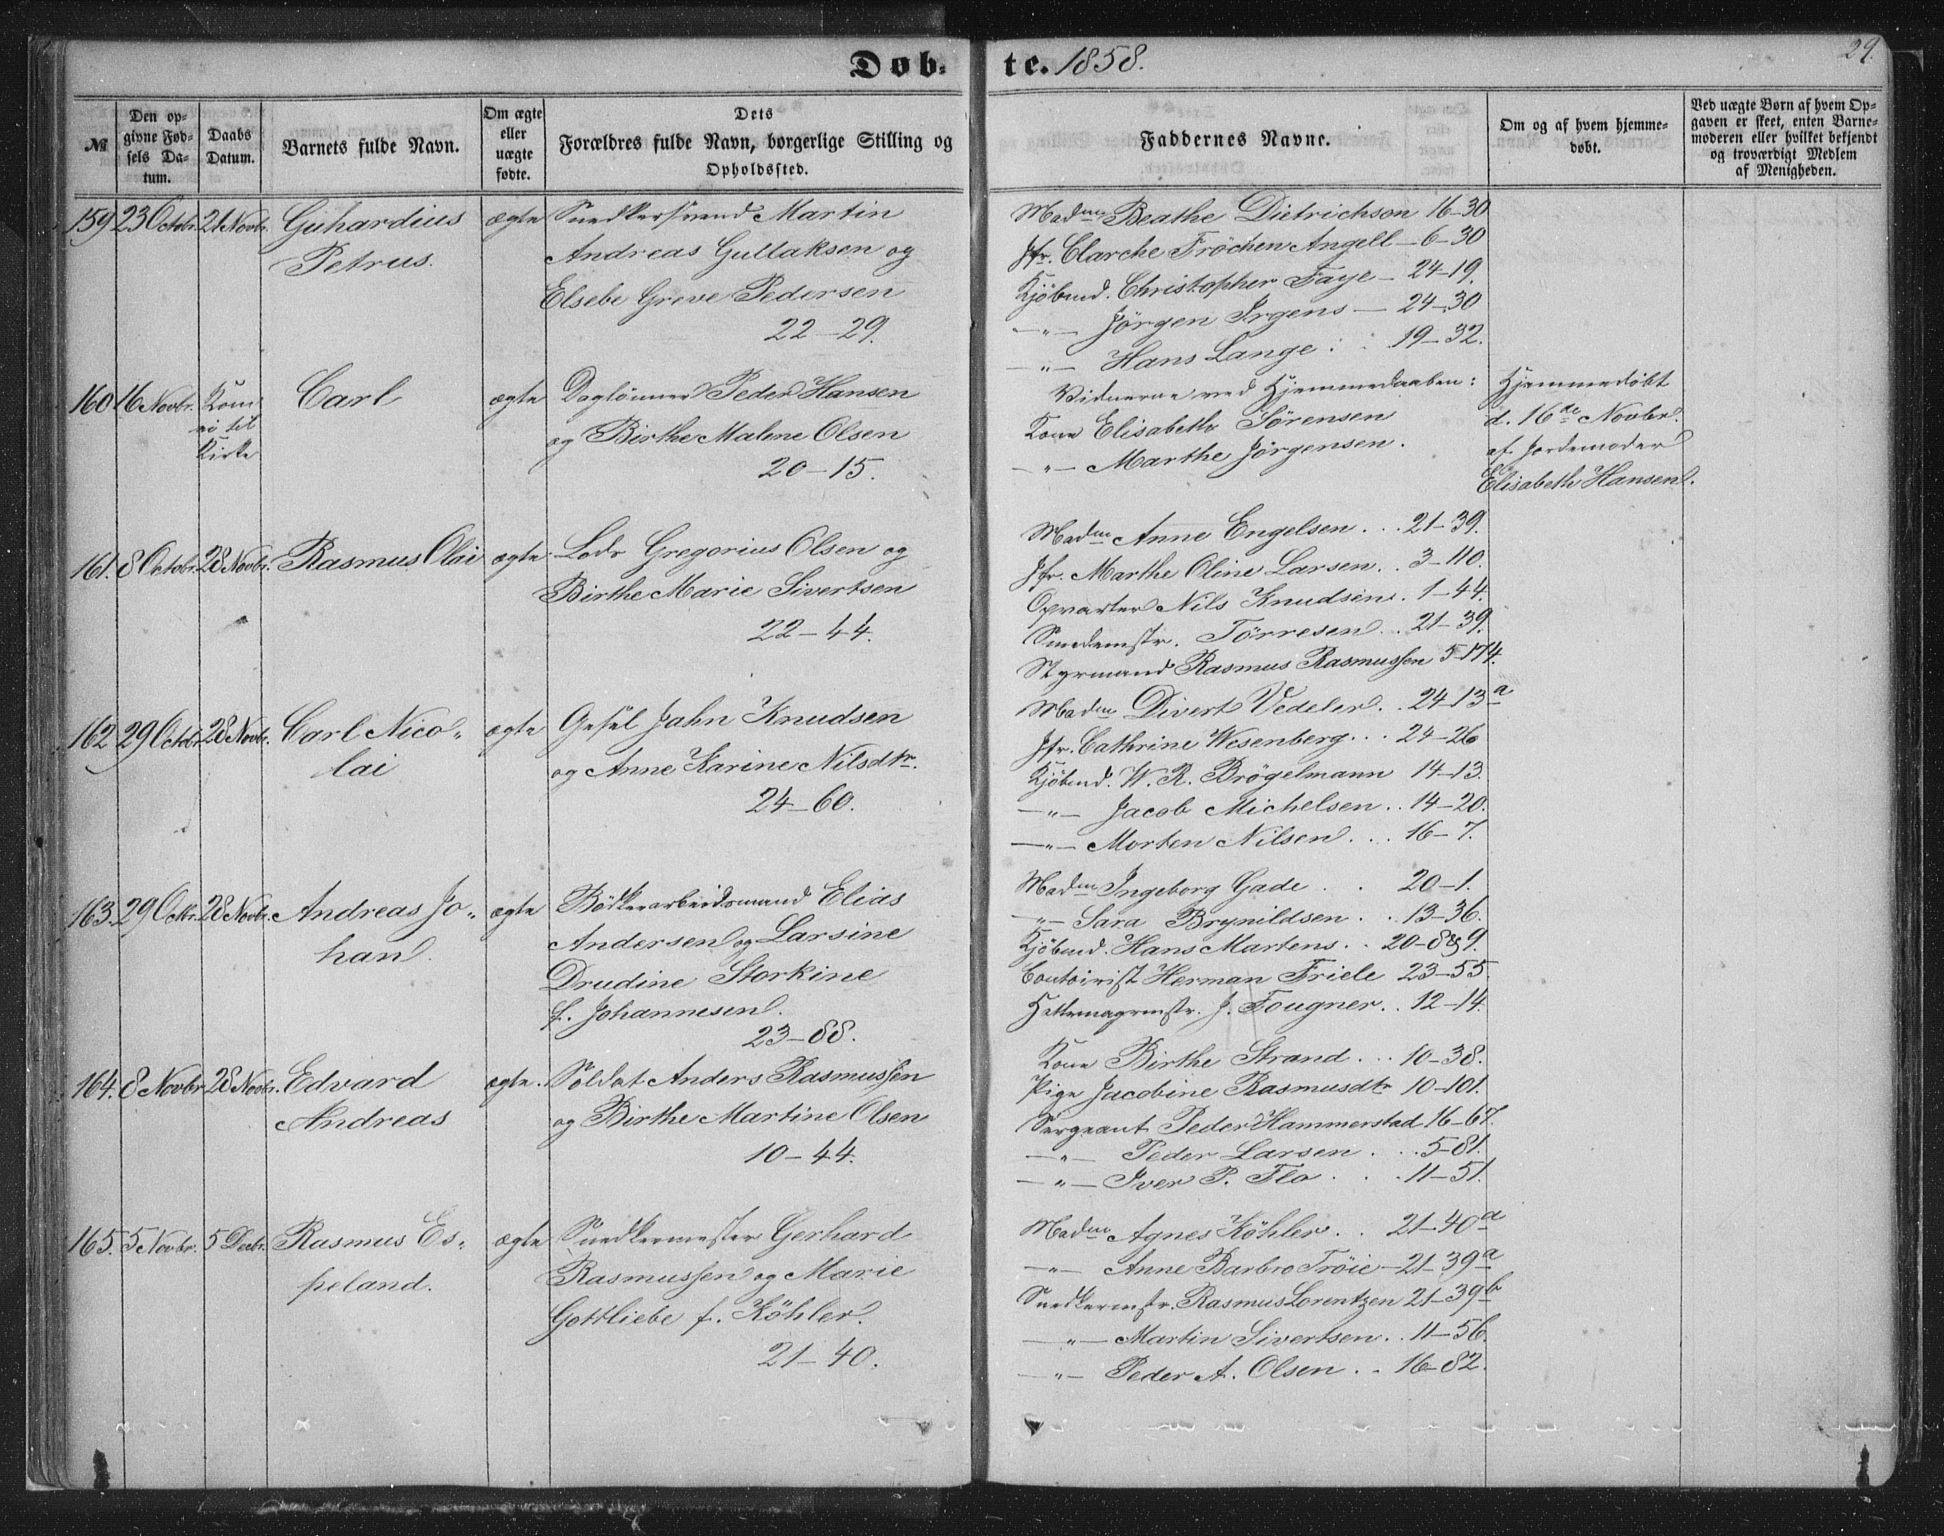 Døb-
te. 1858.
29.
№
Den op-
givne Fød-
sels Da-
tum.
Daabs
Datum.
Barnets fulde Navn.
Om ægte
eller
uægte
fødte.
Dets
Forældres fulde Navn, borgerlige Stilling og
Opholdssted.
Faddernes Navne.
Om og af hvem hjemme-
døbt.
Ved uægte Børn af hvem Op-
gaven er skeet, enten Barne-
moderen eller hvilket bekjendt
og troværdigt Medlem
af Menigheden.
159 23 Octobr. 21 Novbr. Guhardius ægte Snedkersvend Martin
Petrus. Andreas Gullaksen og
Elsebe Greve Pedersen
22-29.
Madm Beathe Dietrichson 16-30
Jfr. Clarche Fröchen Angell - 6-30
Kjöbmd. Christopher Faye - 24-19.
-"- Jörgen Irgens - 24-30
-"- Hans Lange . . 19-32.
160 16 Novbr. Kom Carl ægte Daglönner Peder Hansen
ei til
Kirke
og Birthe Malene Olsen
20-15.
Vidnerne ved Hjemmedaaben:
Kone Elisabeth Sörensen
-"- Marthe Jörgensen.
Hjemmedöbt
d. 16de Novbr.
af Jordemoder
Elisabeth Hansen.
161. 8 Octobr. 28 Novbr. Rasmus Olai ægte Lods Gregorius Olsen og
Birthe Marie Sivertsen
22-44.
Madm Anne Engelsen . . 21-39.
Jfr. Marthe Oline Larsen. . 3-110.
Opvarter Nils Knudsen. 1-44.
Smedemstr. Törresen . . 21-39.
Styrmand Rasmus Rasmussen 5-174.
162 29 Octobr. 28 Novbr. Carl Nico- ægte Gesel Jahn Knudsen
lai og Anne Karine Nilsdtr.
24-60.
Madm Divert Vedeler. . 24-13a
Jfr. Cathrine Wesenberg . . . 24-26
Kjöbmd. W. R. Brögelmann 14-13.
-"- Jacob Michelsen . . 14-20.
-"- Morten Nilsen . . . 16-7.
163. 29 Octbr. 28 Novbr. Andreas Jo- ægte Bödkerarbeidsmand Elias
han. Andersen og Larsine
Drudine Storkine
f. Johannesen.
23-88.
Madm Ingeborg Gade . . 20-1.
-"- Sara Brynildsen . . 13-36.
Kjöbmd. Hans Martens. . 20-8&9.
Contoirist Herman Friele 23-55.
Hattemagermstr. J. Fougner . . 12-14.
164. 8 Novbr. 28 Novbr. Edvard ægte. Soldat Anders Rasmussen
Andreas og Birthe Martine Olsen
10-44.
Kone Birthe Strand . . . 10-38.
Pige Jacobine Rasmusdtr 10-101.
Sergeant Peder Hammerstad 16-67.
-"- Peder Larsen . . . 5-81.
-"- Iver P. Flo . . . 11-51.
165. 5 Novbr. 5 Decbr. Rasmus Es- ægte Snedkermester Gerhard
peland. Rasmussen og Marie
Gottliebe f. Köhler.
21-40.
Madm Agnes Köhler. . 21-40a
-"- Anne Barbro Tröie - 21-39a
Snedkermstr. Rasmus Lorentzen 21-39b
-"- Martin Sivertsen. . 11-56.
-"- Peder A. Olsen . . 16-82.